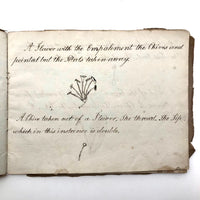 A Flower with the Empalement the Chives and
pointal but the Petals taken away.
A Chive taken out of a Flower, the thread, the Tips
which in this instance is double.